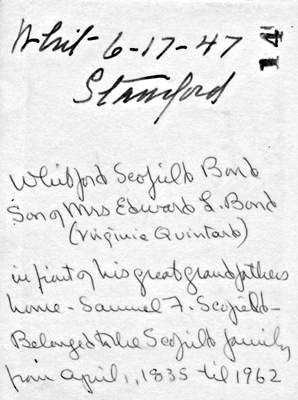 Whit - 6-17-47
14
Stamford
Whitford Scofield Bond
Son of Mrs Edward L. Bond
(Virginia Quintard)
in front of his great grandfathers
home - Samuel F. Scofield -
Belonged to the Scofield family
from April 1, 1835 til 1962